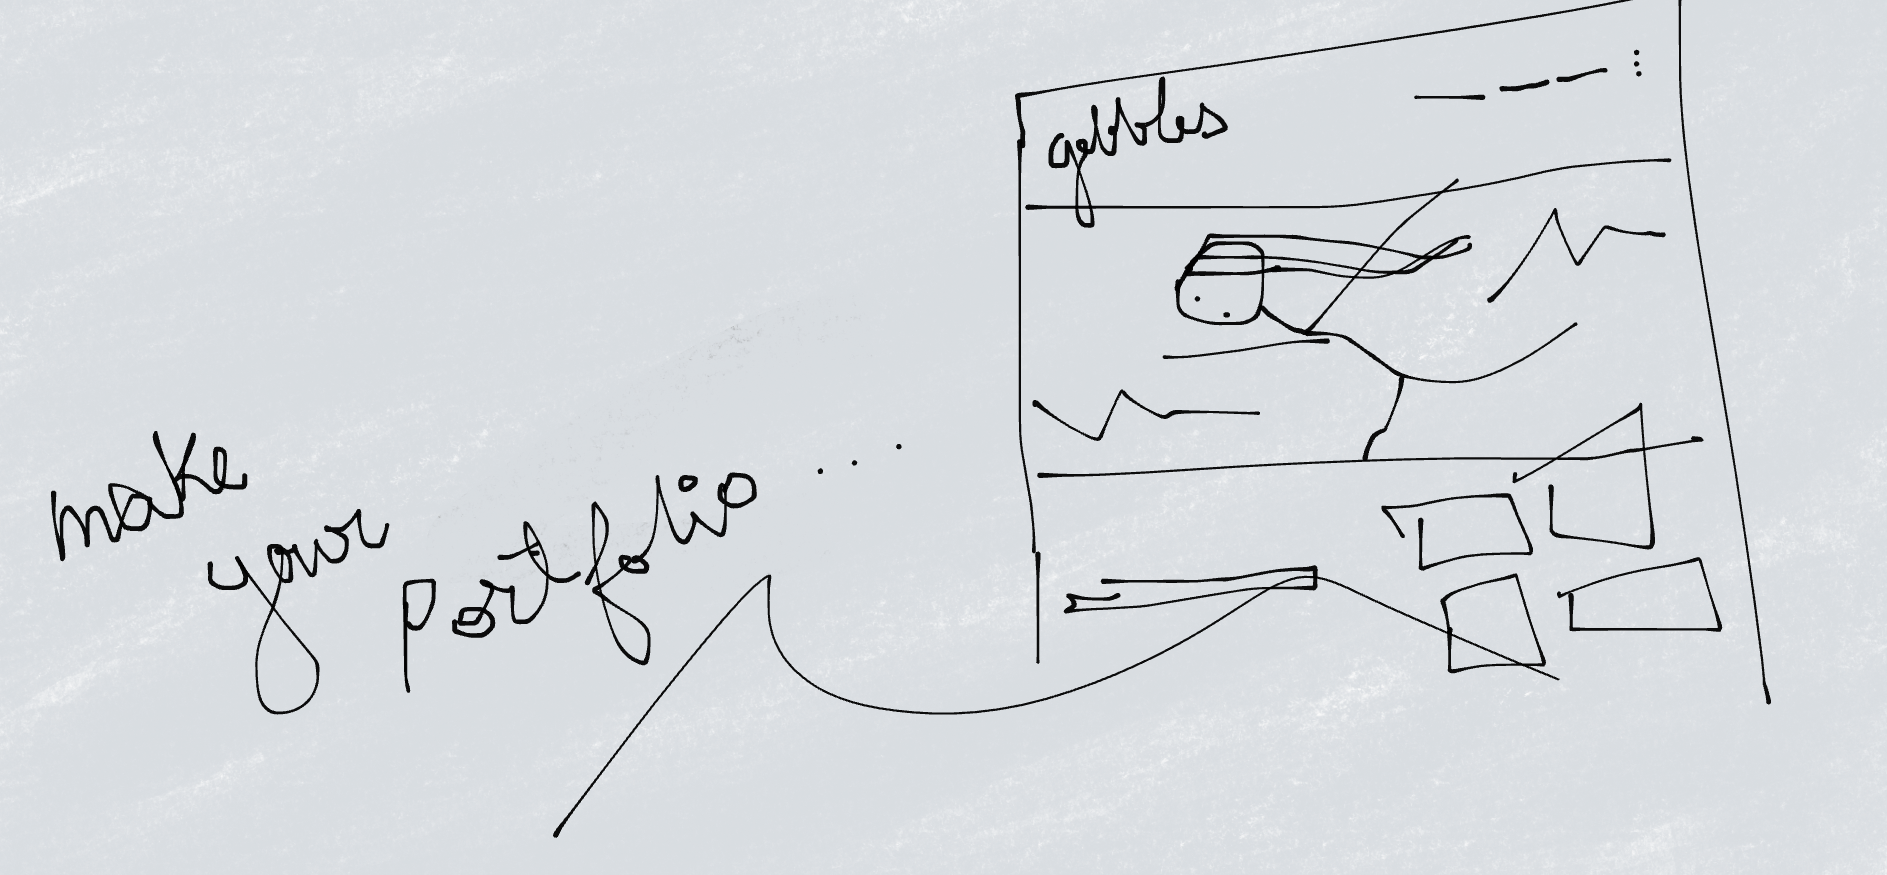 make
your
portfolio...
gebbles